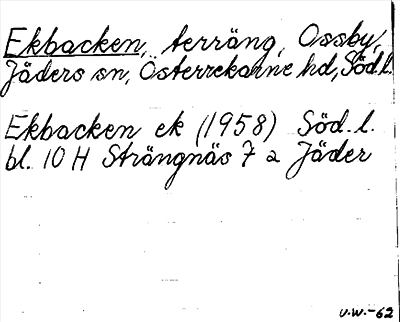 Ekbacken, terräng, Ossby,
Jäders sn, Österrekarne hd, Södl.
Ekbacken ek (1958) Söd. l.
bl. 10 H Strängnäs 7 a Jäder
U.W.-62